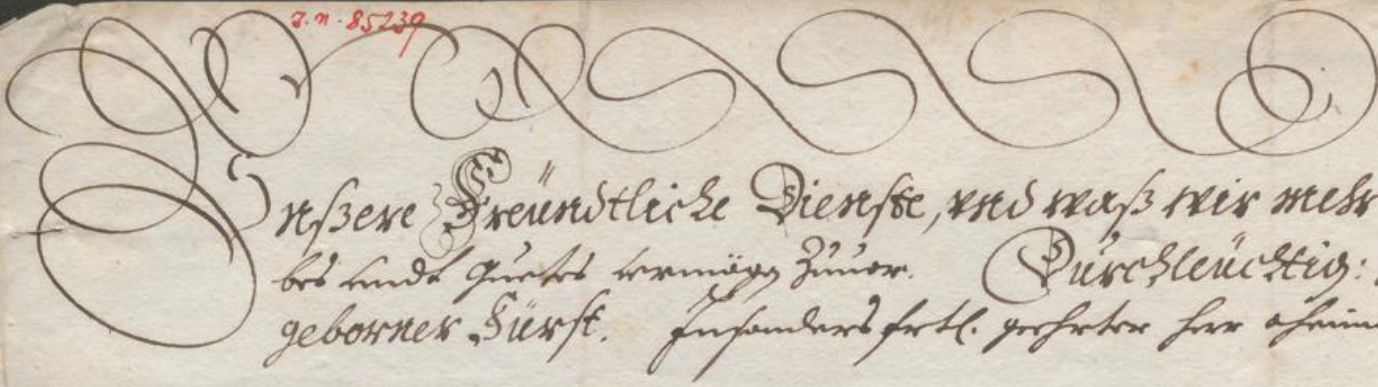 J.N. 85239
Unßere Freündtliche Dienste, vnd waß wir mehr
bes undt Guetes vermögen Zuuor. Durchleüchtig:
geborner Fürst. Insonders frtl. geehrter herr oheim